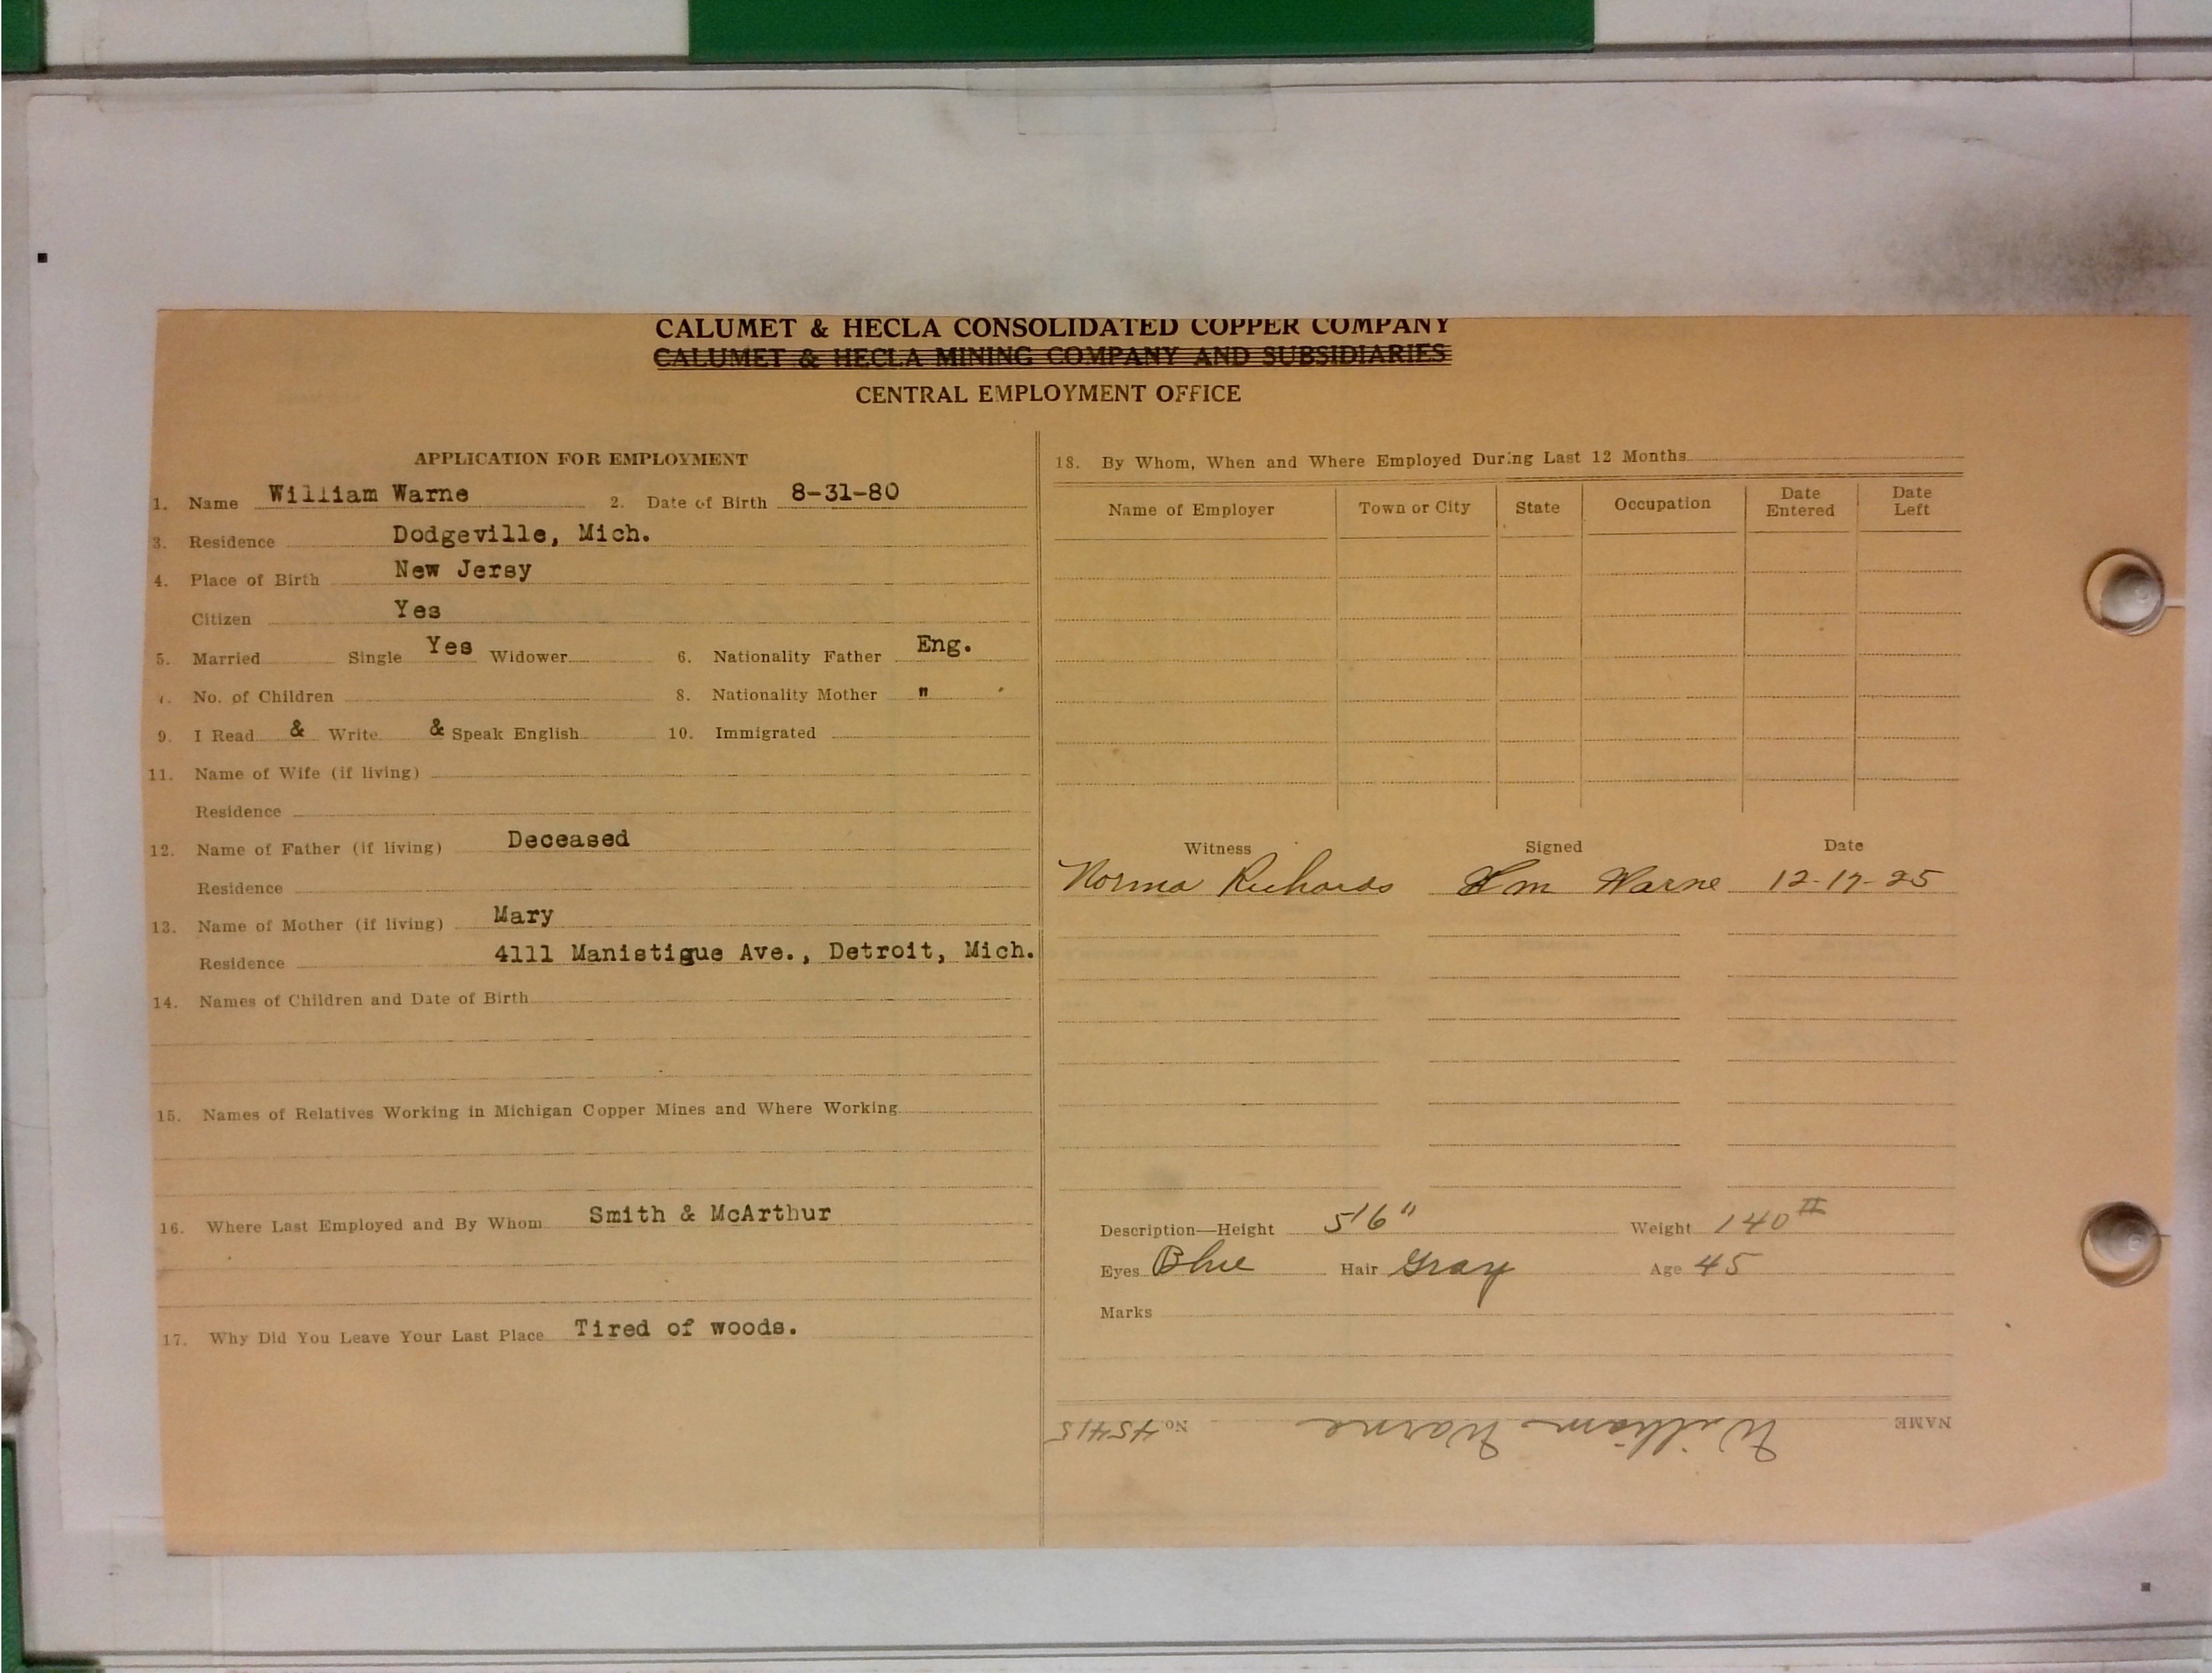 CALUMET & HECLA CONSOLIDATED COPPER COMPANY
CALUMET & HECLA MINING COMPANY AND SUBSIDIARIES
CENTRAL EMPLOYMENT OFFICE
APPLICATION FOR EMPLOYMENT
1. Name William Warne 2. Date of Birth 8-31-80
3. Residence Dodgeville, Mich.
4. Place of Birth New Jersy
Citizen Yes
5. Married Single Yes Widower 6. Nationality Father Eng.
No. of Children 8. Nationality Mother "
9. I Read & Write & Speak English 10. Immigrated
11. Name of Wife (if living)
Residence
12. Name of Father (if living) Deceased
Residence
13. Name of Mother (if living) Mary
Residence 4111 Manistigue Ave., Detroit, Mich.
14. Names of Children and Date of Birth
15. Names of Relatives Working in Michigan Copper Mines and Where Working
16. Where Last Employed and By Whom Smith & McArthur
17. Why Did You Leave Your Last Place Tired of woods.
18. By Whom, When and Where Employed During Last 12 Months
Name of Employer Town or City State Occupation Date Entered Date Left
Witness Signed Date
Norma Richards Wm Warne 12-17-25
Description—Height 5'6" Weight 140#
Eyes Blue Hair Gray Age 45
Marks
NAME William Warne No. 45415